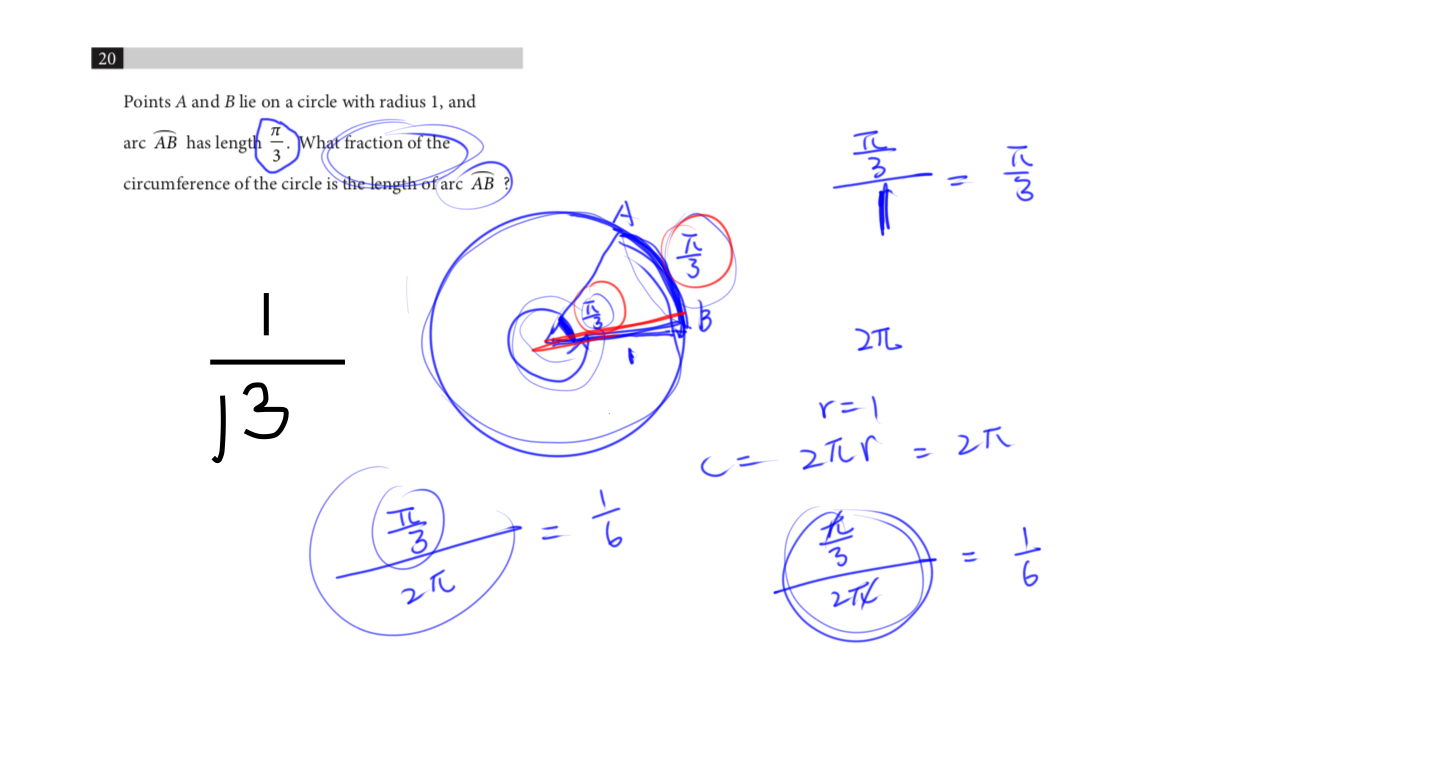 20
Points A and B lie on a circle with radius 1, and
arc AB has length π/3. What fraction of the
circumference of the circle is the length of arc AB ?
A
π/3
B
π/3
1
(π/3)/1 = π/3
2π
r=1
c = 2πr = 2π
1/3
(π/3)/2π = 1/6
(π/3)/2π = 1/6